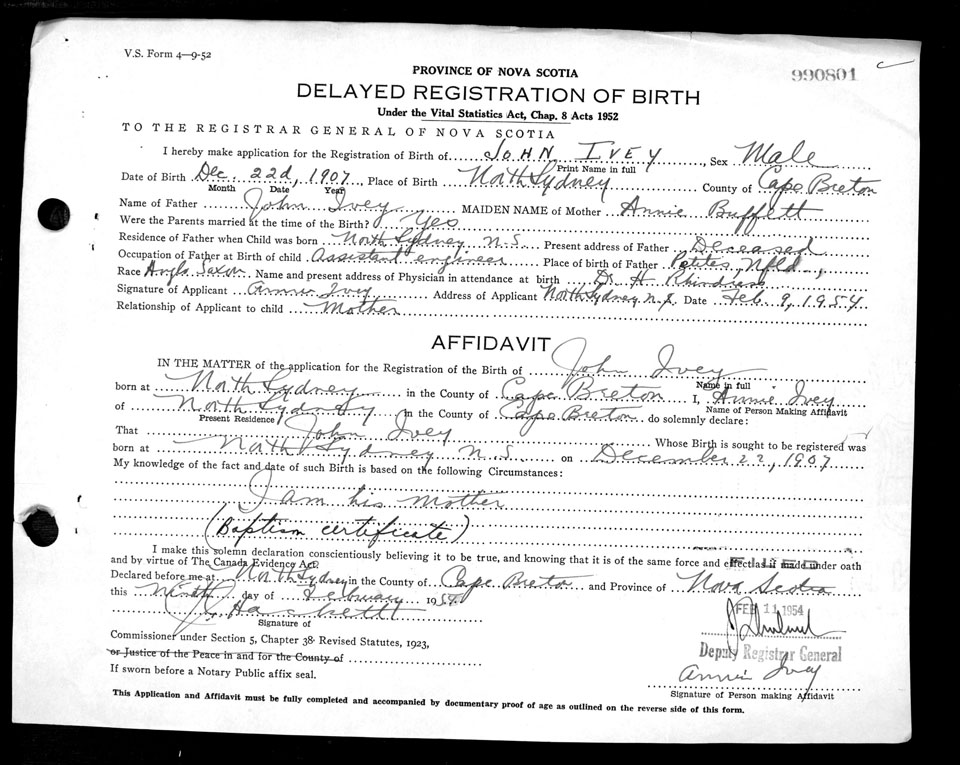 V.S. Form 4—9-52
990801
c
PROVINCE OF NOVA SCOTIA
DELAYED REGISTRATION OF BIRTH
Under the Vital Statistics Act, Chap. 8 Acts 1952
TO THE REGISTRAR GENERAL OF NOVA SCOTIA
I hereby make application for the Registration of Birth of JOHN IVEY, Sex Male
Print Name in full
Date of Birth Dec. 22d, 1907, Place of Birth North Sydney County of Cape Breton
Month Date Year
Name of Father John Ivey MAIDEN NAME of Mother Annie Buffett
Were the Parents married at the time of the Birth? Yes
Residence of Father when Child was born North Sydney N.S. Present address of Father Deceased
Occupation of Father at Birth of child Assistant engineer Place of birth of Father Petites, Nfld,
Race Anglo Saxon Name and present address of Physician in attendance at birth Dr H
Signature of Applicant Annie Ivey Address of Applicant North Sydney N.S. Date Feb 9, 1954
Relationship of Applicant to child Mother
AFFIDAVIT
IN THE MATTER of the application for the Registration of the Birth of John Ivey
Name in full
born at North Sydney in the County of Cape Breton I, Annie Ivey
Name of Person Making Affidavit
of North Sydney in the County of Cape Breton do solemnly declare:
Present Residence
That John Ivey Whose Birth is sought to be registered was
born at North Sydney N.S. on December 22, 1907
My knowledge of the fact and date of such Birth is based on the following Circumstances:
I am his mother
(Baptism certificate)
I make this solemn declaration conscientiously believing it to be true, and knowing that it is of the same force and effect as if made under oath
and by virtue of The Canada Evidence Act.
FILED
Declared before me at North Sydney in the County of Cape Breton and Province of Nova Scotia
this Ninth day of February 1954
FEB 11 1954
Signature of
Commissioner under Section 5, Chapter 38 Revised Statutes, 1923,
Deputy Registrar General
or Justice of the Peace in and for the County of
Annie Ivey
If sworn before a Notary Public affix seal.
Signature of Person making Affidavit
This Application and Affidavit must be fully completed and accompanied by documentary proof of age as outlined on the reverse side of this form.